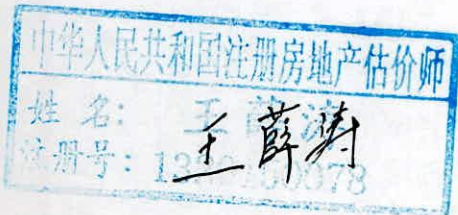 中华人民共和国注册房地产估价师
姓 名：王薛涛
注册号：13
0078
王薛涛